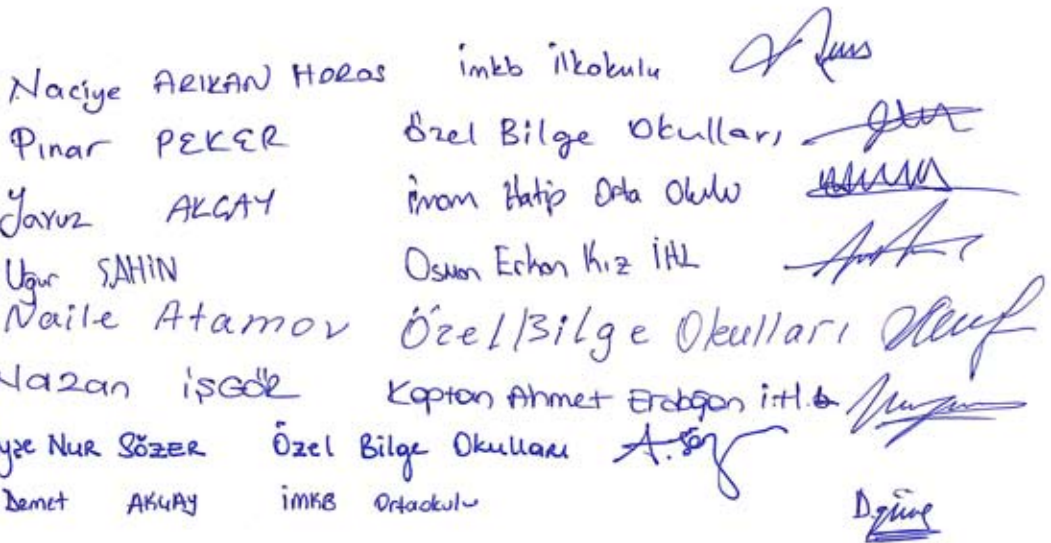 Naciye ARIKAN HOROS imkb ilkokulu
Pınar PEKER Özel Bilge Okulları
Yavuz AKÇAY İmam Hatip Orta Okulu
Uğur ŞAHİN Osman Erkan Kız İHL
Naile Atamov Özel Bilge Okulları
Nazan İŞGÖR Kaptan Ahmet Erdoğan İ.H.L
yşe NUR SÖZER Özel Bilge Okulları A.Söz
Demet AKÇAY İMKB Ortaokulu